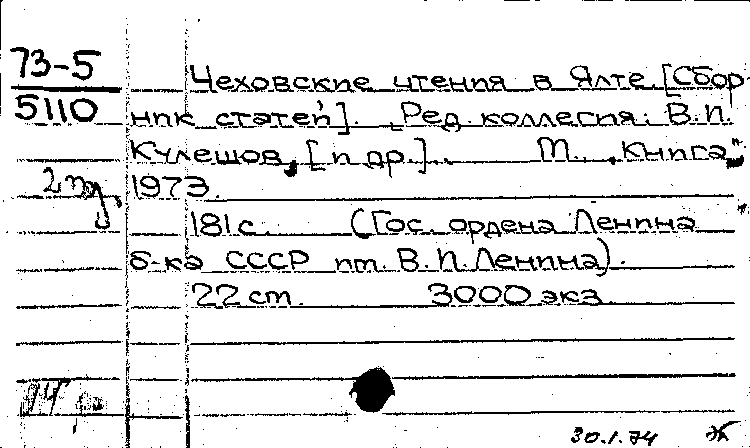 73-5
5110
Чеховские чтения в Ялте. [Сбор
ник статей]. Ред. коллегия: В.И.
Кулешов, [и др.]. М., "Книга",
1973.
181 с. (Гос. ордена Ленина
б-ка СССР им. В.И. Ленина).
22 см. 3000 экз.
30.1.74